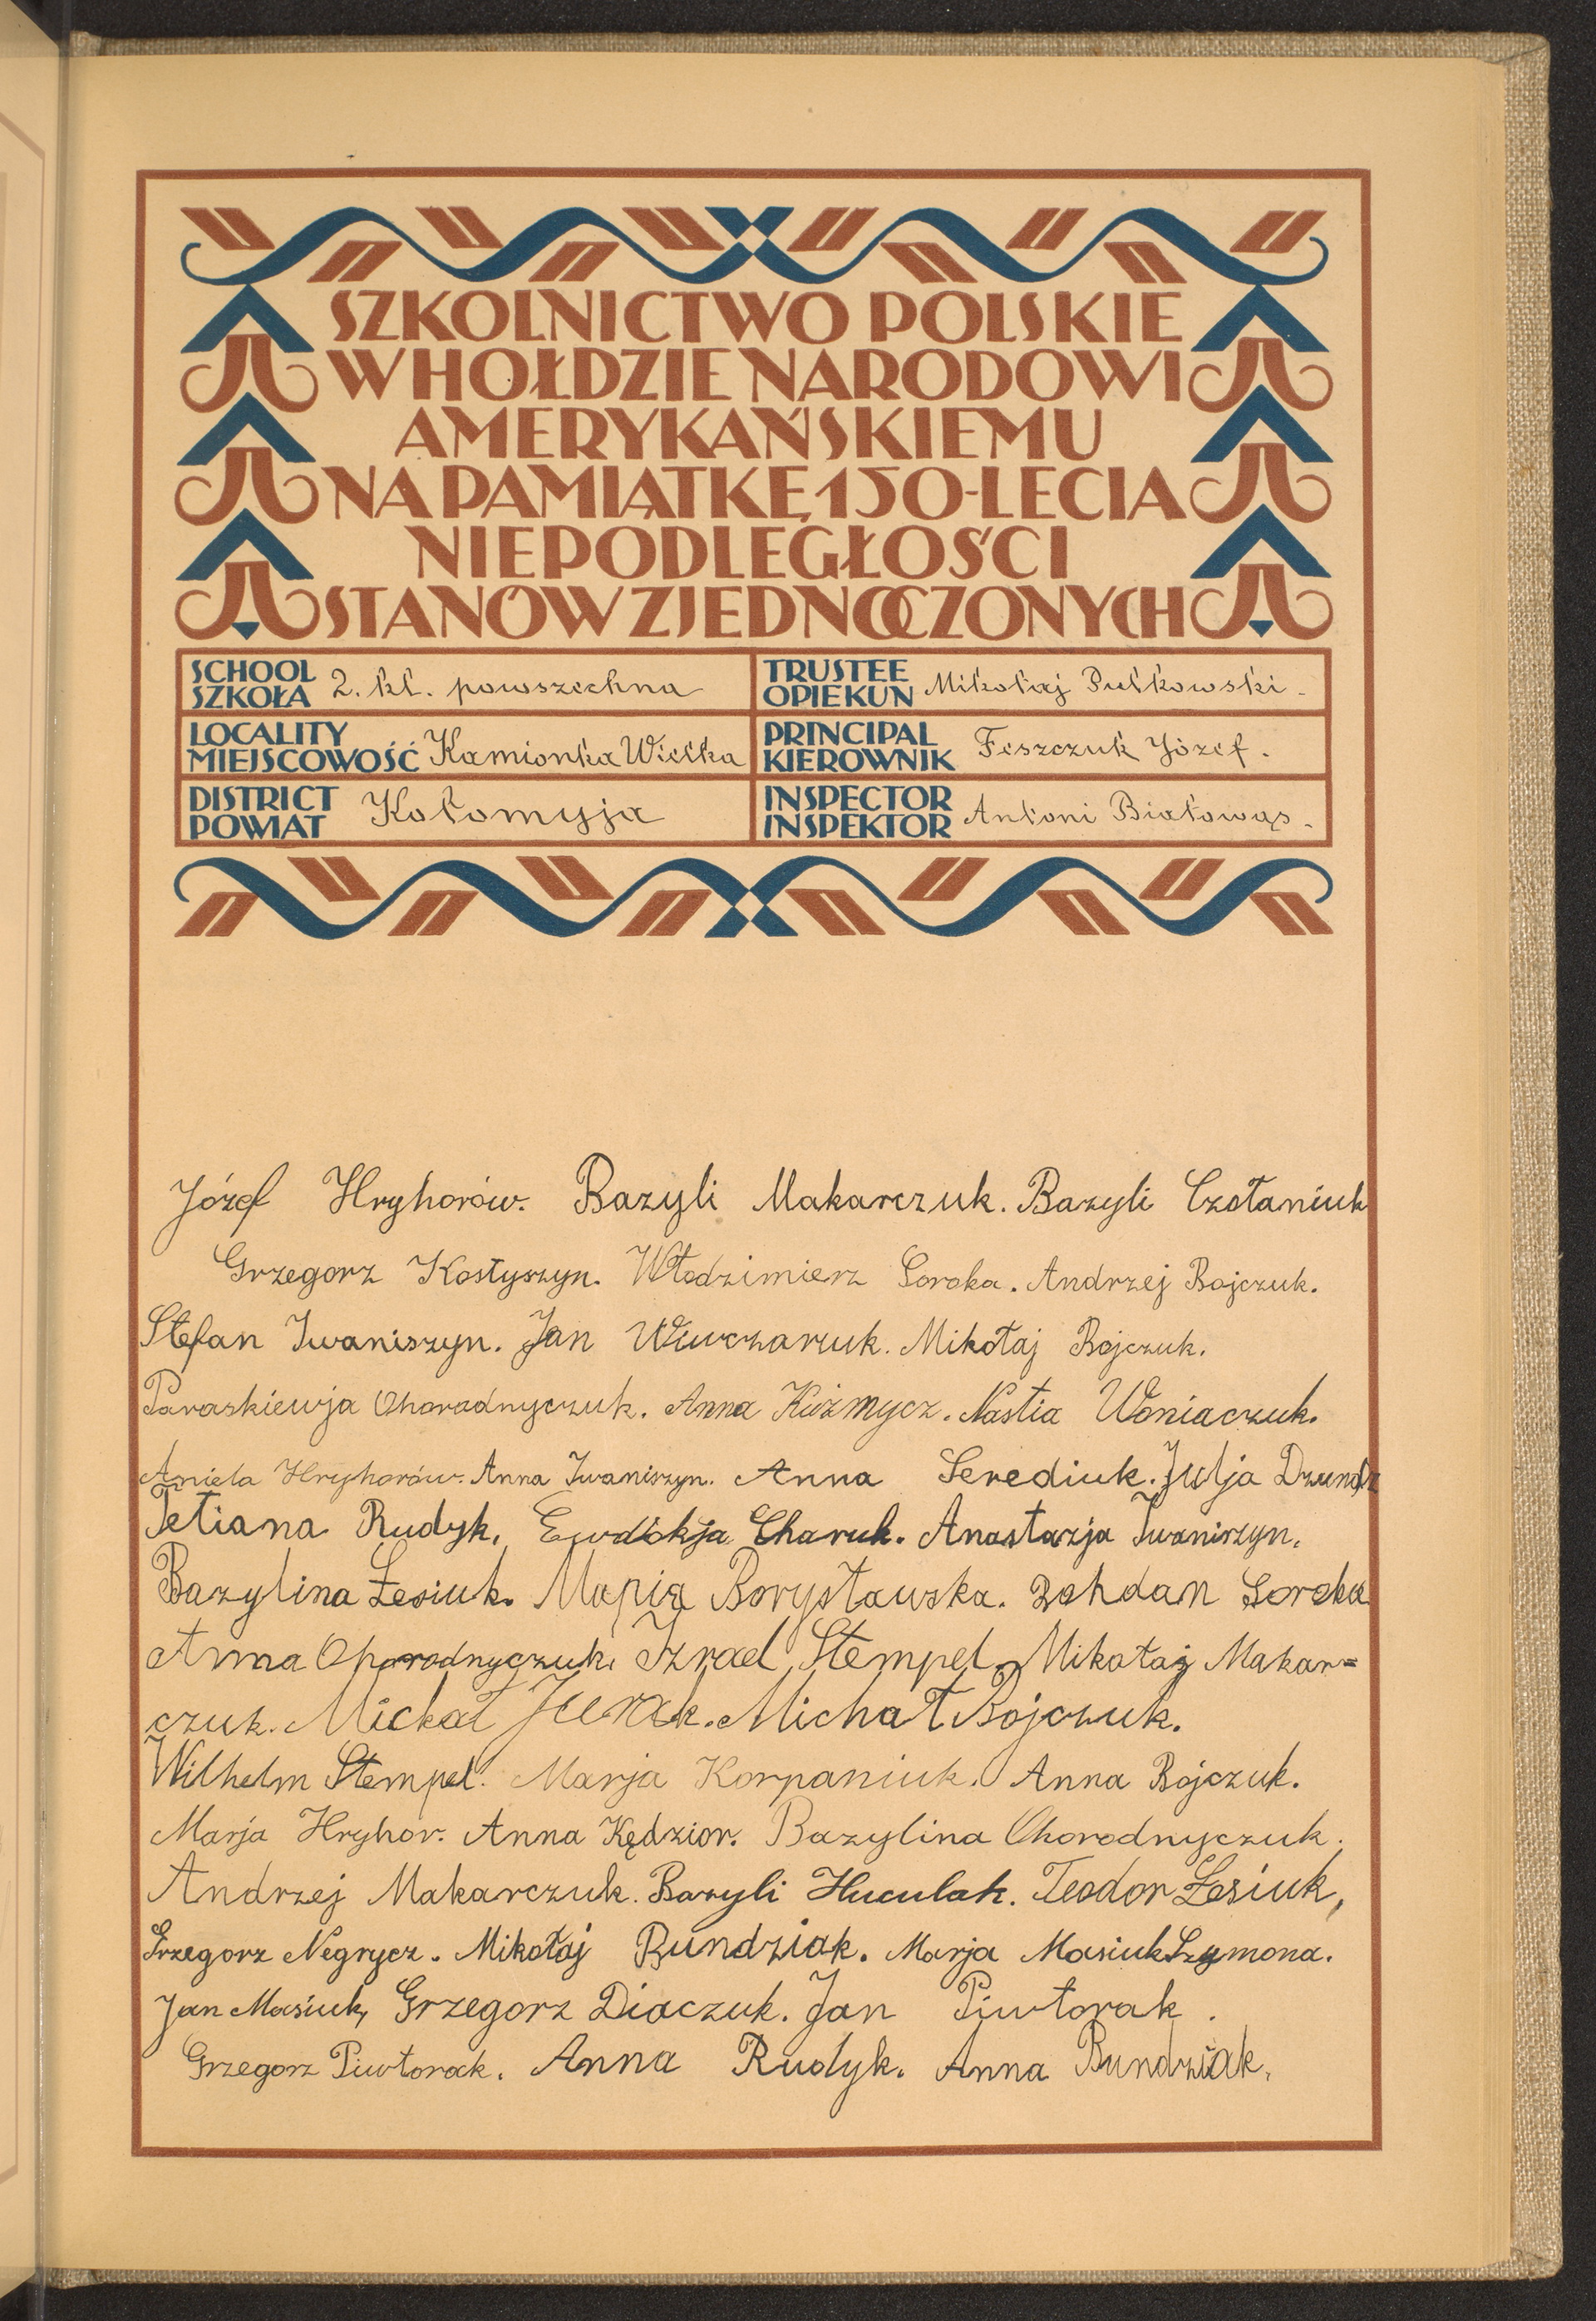 SZKOLNICTWO POLSKIE
W HOŁDZIE NARODOWI
AMERYKAŃSKIEMU
NA PAMIĄTKĘ 150-LECIA
NIEPODLEGŁOŚCI
STANÓW ZJEDNOCZONYCH
SCHOOL
SZKOŁA 2. kl. powszechna
TRUSTEE
OPIEKUN Mikołaj Pułkowski.
LOCALITY
MIEJSCOWOŚĆ Kamionka Wielka
PRINCIPAL
KIEROWNIK Feszczuk Józef.
DISTRICT
POWIAT Kołomyja
INSPECTOR
INSPEKTOR Antoni Białowąs.
Józef Hryhorów. Bazyli Makarczuk. Bazyli Czołaniuk
Grzegorz Kostyszyn. Włodzimierz Soroka. Andrzej Bojczuk.
Stefan Iwaniszyn. Jan Wiwczaruk. Mikołaj Bojczuk.
Paraskiewja Ohorodnyczuk. Anna Kuźmycz. Nastia Woniaczuk.
Aniela Hryhorów. Anna Iwaniszyn. Anna Serediuk. Julja
Tetiana Rudyk. Ewdokja Charuk. Anastazja Iwaniszyn.
Bazylina Łesiuk. Maria Borysławska. Bohdan Soroka
Anna Ohorodnyczuk. Izrael Stempel. Mikołaj Makar=
czuk. Michał Michał Bojczuk.
Wilhelm Stempel. Marja Korpaniuk. Anna Bojczuk.
Marja Hryhor. Anna Kędzior. Bazylina Ohorodnyczuk.
Andrzej Makarczuk. Bazyli Huculak. Teodor Łesiuk,
Grzegorz Negrycz. Mikołaj Bundziak. Marja Masiuk Szymona.
Jan Masiuk, Grzegorz Diaczuk. Jan Piwtorak.
Grzegorz Piwtorak. Anna Rudyk. Anna Bundziak.